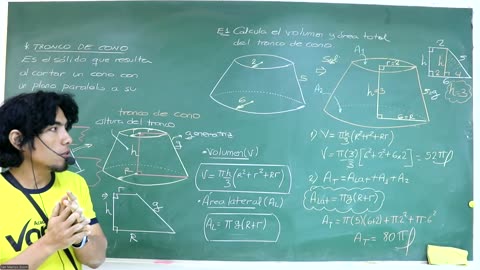 * TRONCO DE CONO
Es el sólido que resulta
al cortar un cono con
plano paralelo a su
tronco de cono
altura del tronco
generatriz
g
h
R
r
h
g
R
• Volumen(V)
V = πh/3 (R²+r²+Rr)
• Área lateral (AL)
AL = πg(R+r)
E1 Calcula el volumen y área total
del tronco de cono.
2
5
6
Sol
A1
r=2
A2
h=3
5=g
6=R
2
h
h
5
2
4
6
h=3
1) V = πh/3 (R²+r²+Rr)
V = π(3)/3 [6²+2²+6x2] = 52π
2) AT = ALat + A1 + A2
ALat = πg(R+r)
AT = π(5)(6+2)+π2²+π·6²
AT = 80π